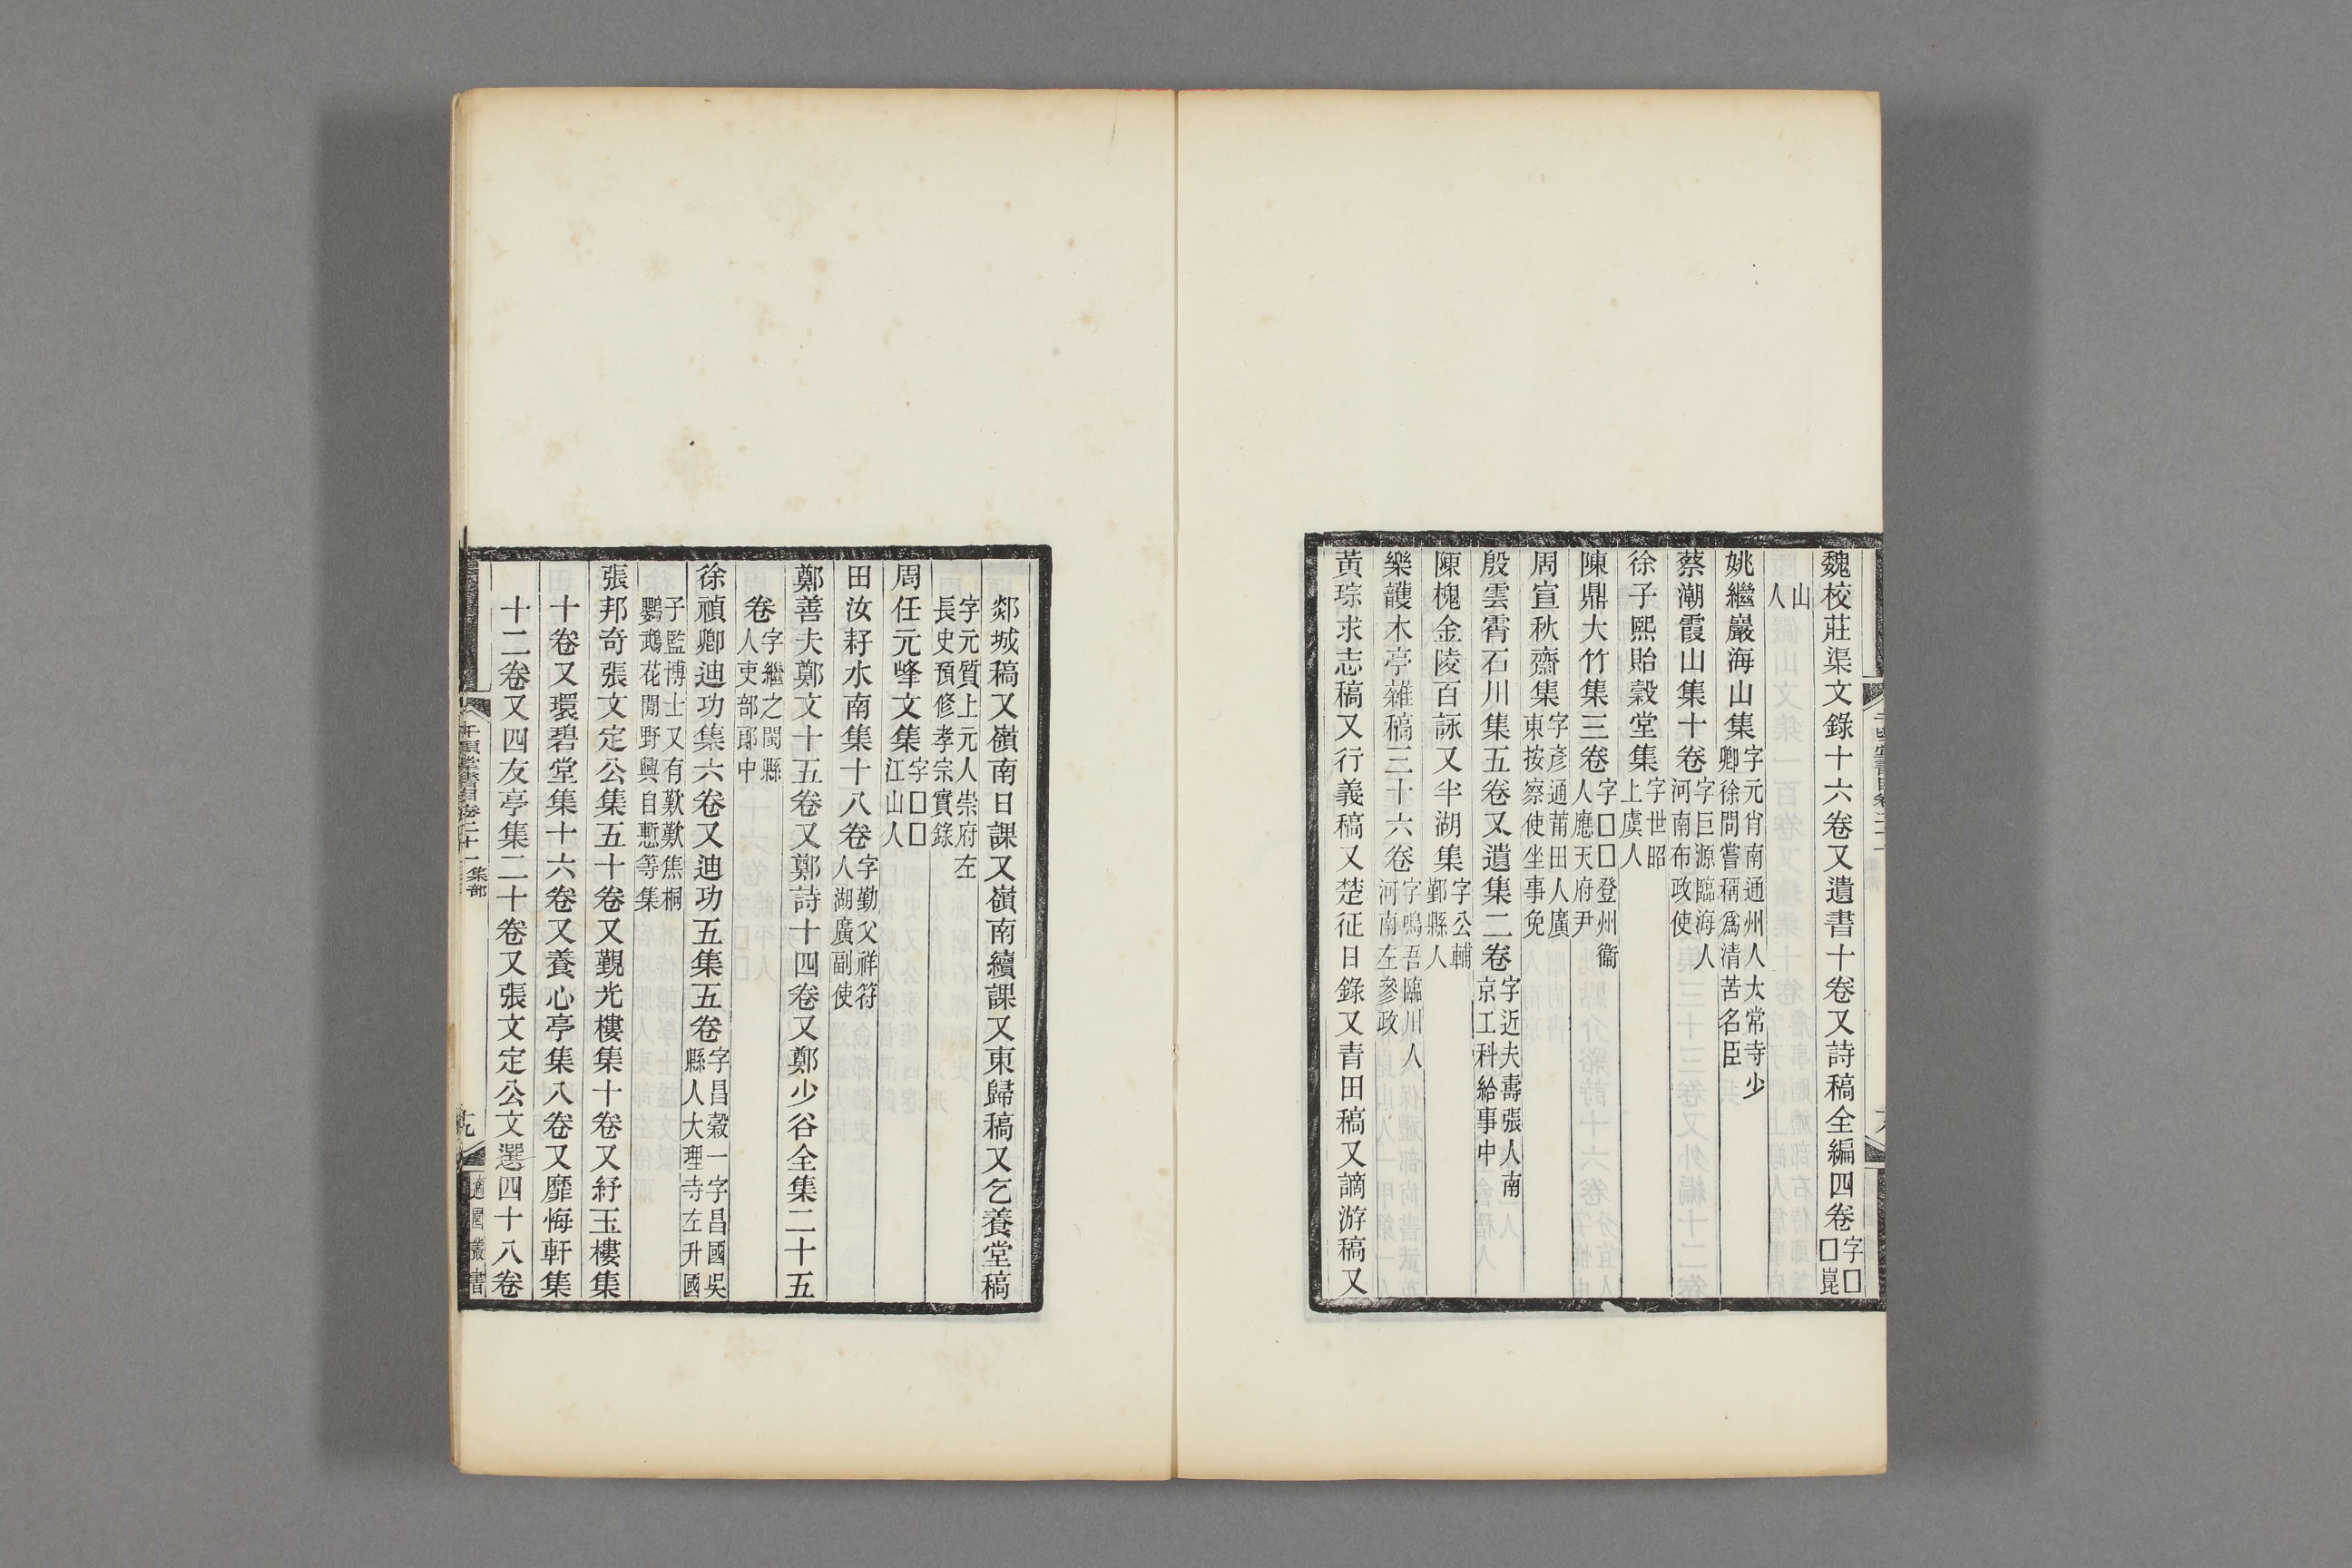 魏校莊渠文錄十六卷又遺書十卷又詩稿全編四卷字□□崑
山人
姚繼巖海山集字元肖南通州人太常寺少卿徐問嘗稱爲清苦名臣
蔡潮霞山集十卷字巨源臨海人河南布政使
徐子熙貽穀堂集字世昭上虞人
陳鼎大竹集三卷字□□登州衞人應天府尹
周宣秋齋集字彥通莆田人廣東按察使坐事免
殷雲霄石川集五卷又遺集二卷字近夫壽張人南京工科給事中
陳槐金陵百詠又半湖集字公輔鄞縣人
樂頀木亭雜稿三十六卷字鳴吾臨川人河南左參政
黃琮求志稿又行義稿又楚征日錄又青田稿又謫游稿又
郯城稿又嶺南日課又嶺南續課又東歸稿又乞養堂稿
字元質上元人崇府左長史預修孝宗實錄
周任元峰文集字□□江山人
田汝耔水南集十八卷字勤父祥符人湖廣副使
鄭善夫鄭文十五卷又鄭詩十四卷又鄭少谷全集二十五
卷字繼之閩縣人吏部郎中
徐禎卿迪功集六卷又迪功五集五卷字昌穀一字昌國吳縣人大理寺左升國
子監博士又有歎歎焦桐鸚鵡花閒野興自慙等集
張邦奇張文定公集五十卷又覲光樓集十卷又紓玉樓集
十卷又環碧堂集十六卷又養心亭集八卷又靡悔軒集
十二卷又四友亭集二十卷又張文定公文選四十八卷
千頃堂書目卷二十一集部
十九
適園叢書